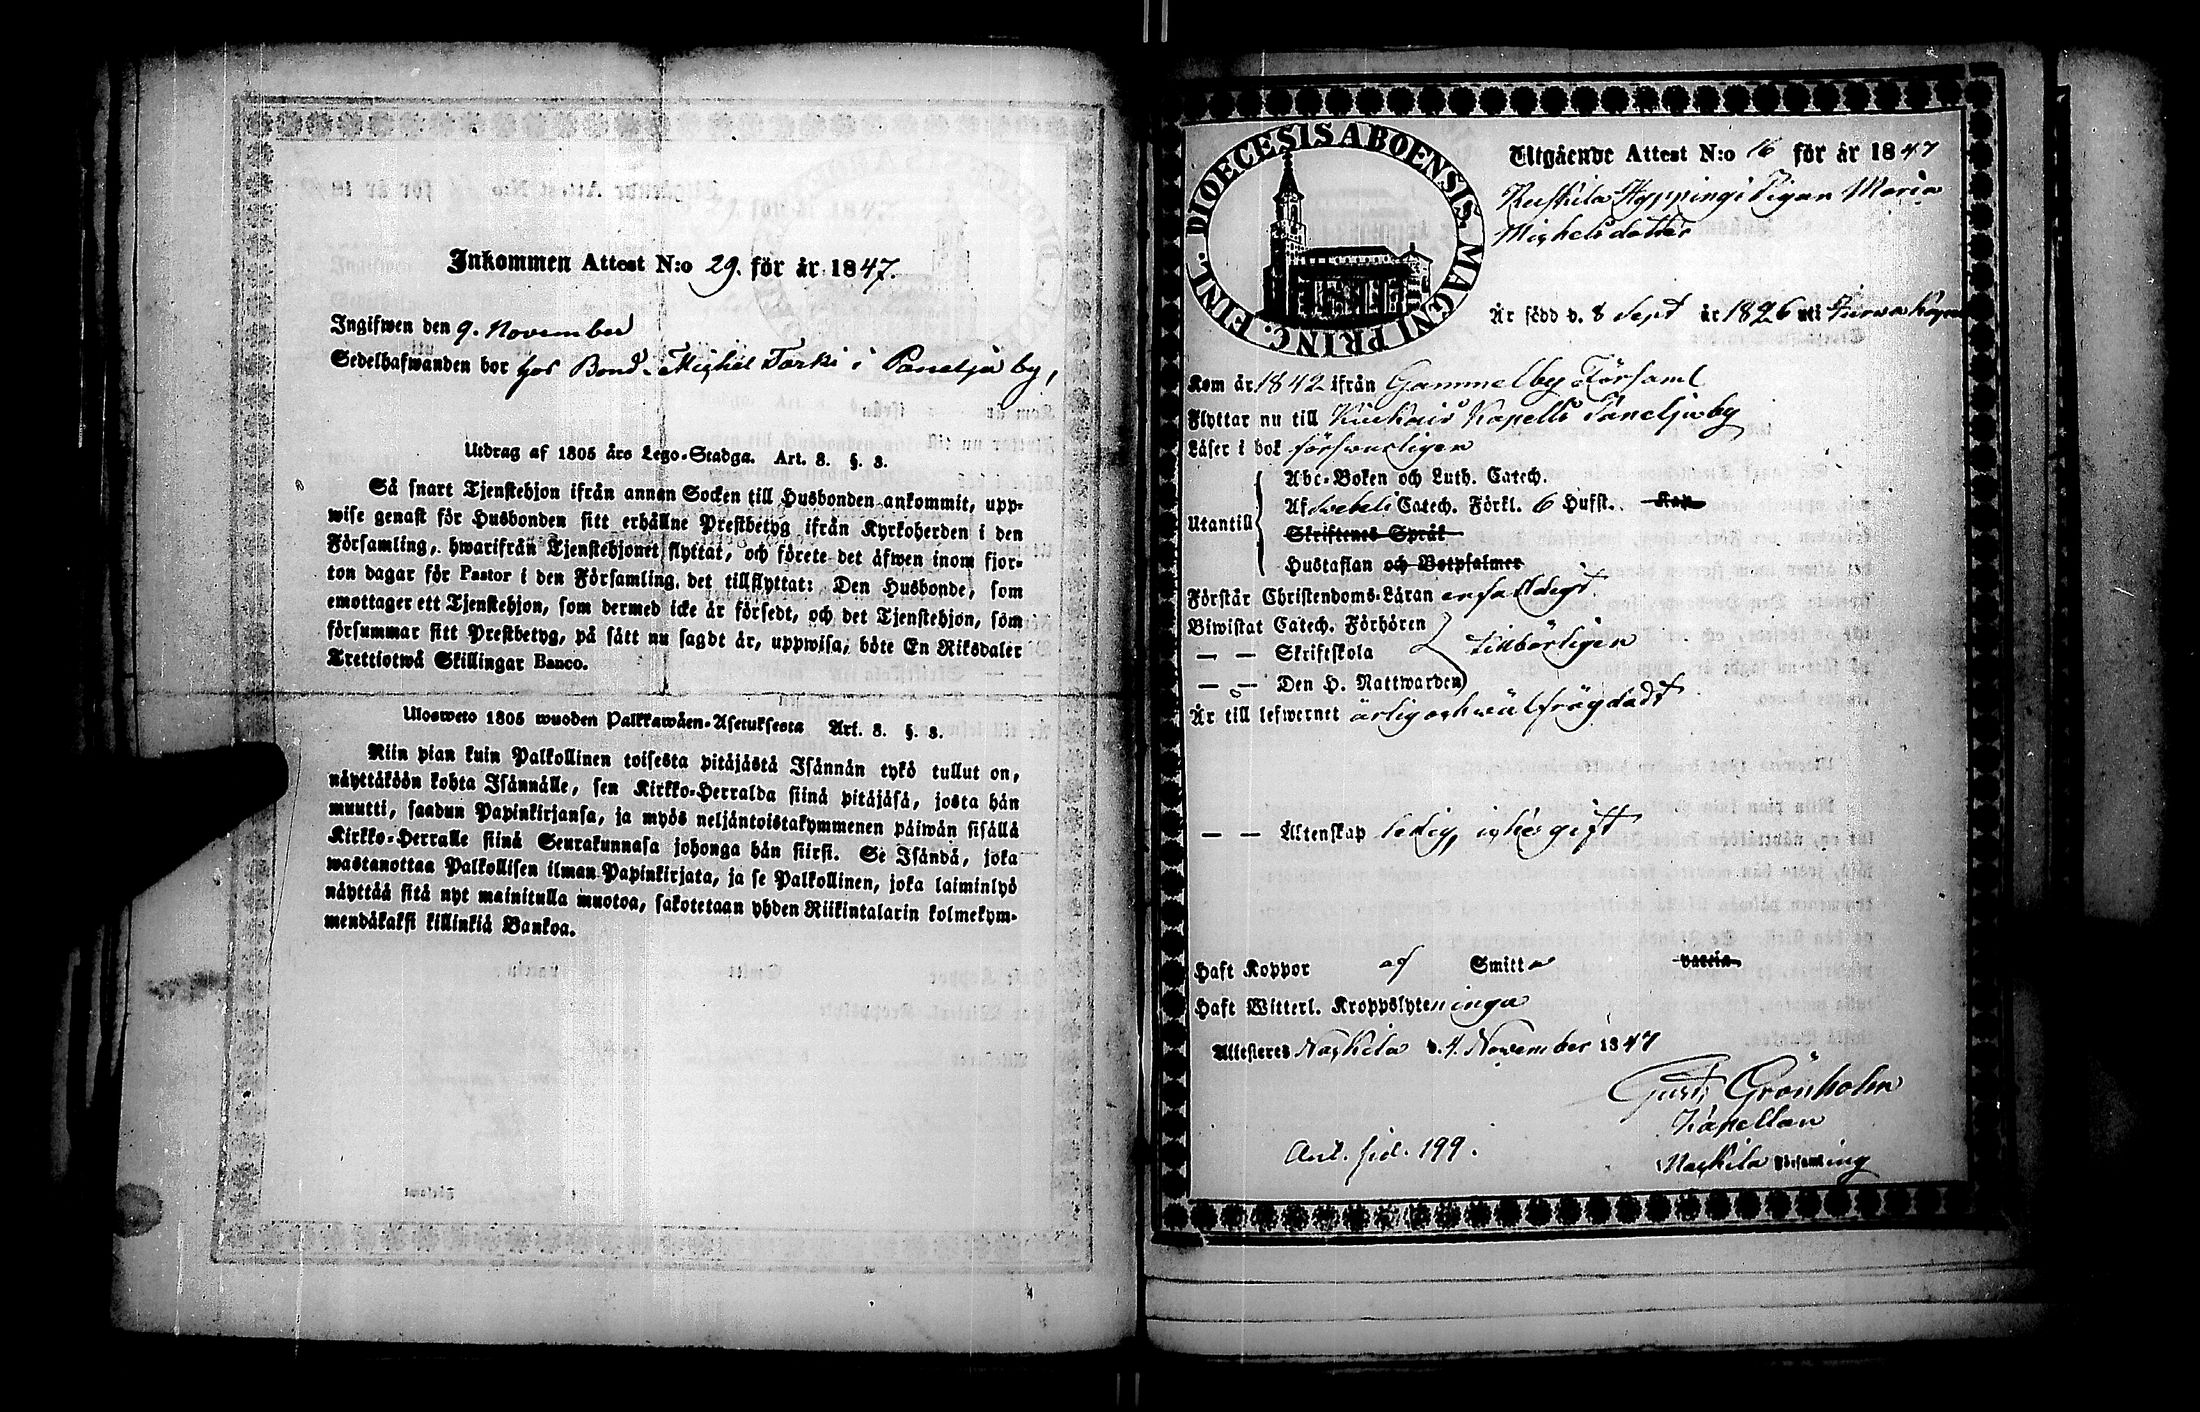 Inkommen Attest N:o 29. för år 1847.
Ingifwen den 9. November
Sedelhafwanden bor hos Bond. Michel Torki i Panelja by,
Utdrag af 1805 års Lego-Stadga. Art. 8. §. 3.
Så snart Tjenstehjon ifrån annan Socken till Husbonden ankommit, upp-
wise genast för Husbonden sitt erhållne Prestbetyg ifrån Kyrkoherden i den
Församling, hwarifrån Tjenstehjonet flyttat, och förete det äfwen inom fjor-
ton dagar för Pastor i den Församling, det tillflyttat: Den Husbonde, som
emottager ett Tjenstehjon, som dermed icke är försedt, och det Tjenstehjon, som
försummar sitt Prestbetyg, på sätt nu sagdt är, uppwisa, böte En Riksdaler
Trettiotwå Skillingar Banco.
Ulosweto 1805 wuoden Palkkawäen-Asetuksesta Art. 8. §. 3.
Niin pian kuin Palkollinen toisesta pitäjästä Isännän tykö tullut on,
näyttäköön kohta Isännälle, sen Kirkko-Herralda siinä pitäjäsä, josta hän
muutti, saadun Papinkirjansa, ja myös neljäntoistakymmenen päiwän sisällä
Kirkko-Herralle siinä Seurakunnasa johonga hän siirsi. Se Isändä, joka
wastanottaa Palkollisen ilman Papinkirjata, ja se Palkollinen, joka laiminlyö
näyttää sitä nyt mainitulla muotoa, sakotetaan yhden Riikintalarin kolmekym-
mendäkaksi killinkiä Bankoa.
DIOECESIS ABOENSIS. MAGNI PRINC. FINL.
Utgående Attest N:o 16 för år 1847
Ruskila Hyppingi Pigan Maria
Michelsdotter
Är född d. 8 Sept år 1826 uti
Kom år 1842 ifrån Gammelby Församl
Flyttar nu till Kiukais Kapells Paneljaby
Läser i bok försvarligen
Utantill
Abc-Boken och Luth. Catech.
Af Svebeli Catech. Förkl. 6 Hufst. Kap
Skriftenes Språk
Hustaflan och Botpsalmer
Förstår Christendoms-Läran enfaldigt
Biwistat Catech. Förhören
— — Skriftskola tillbörligen
— — Den H. Nattwarden
Är till lefwernet ärlig och wälfrägdadt
— — Äktenskap ledig, icke gift
Haft Koppor af Smitta vaccin
Haft Witterl. Kroppslyten inga
Attesteres Nackila d. 4. November 1847
Gust. Grönholm
Kapellan
Nackila Församling
Ant. sid. 199.